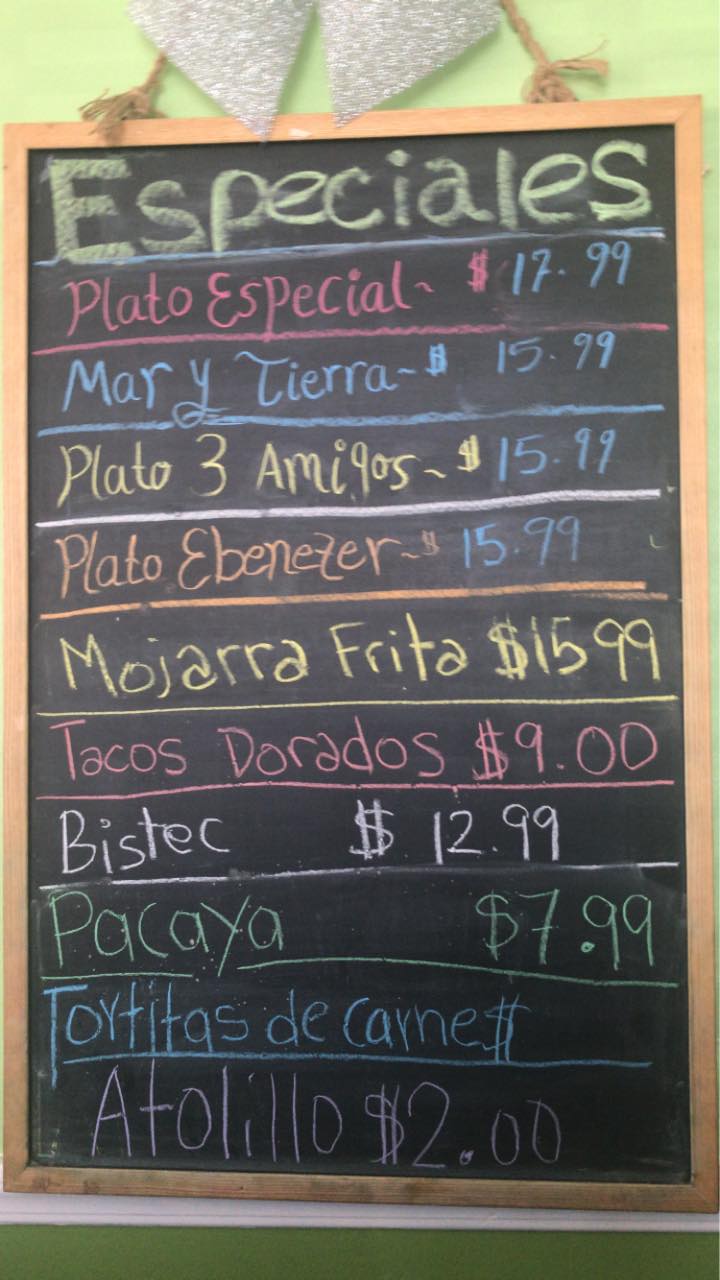 Especiales
Plato Especial ~ $ 17.99
Mar y Tierra ~ $ 15.99
Plato 3 Amigos ~ $ 15.99
Plato Ebenezer ~ $ 15.99
Mojarra Frita $15 99
Tacos Dorados $9.00
Bistec $ 12.99
Pacaya $7.99
Tortitas de carne $
Atolillo $2.00